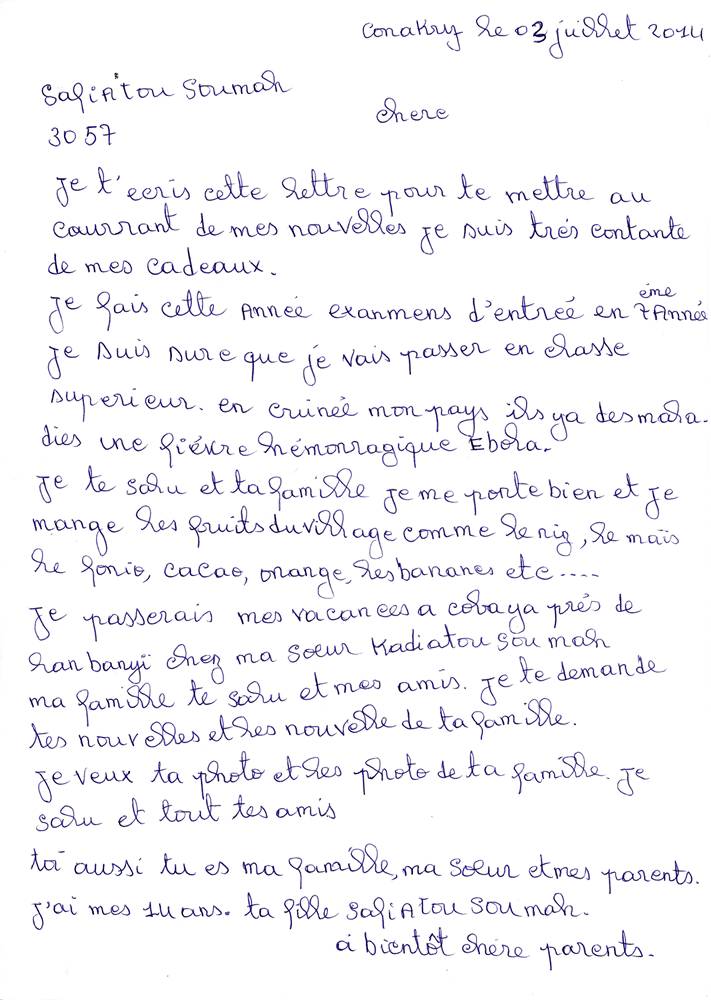 Conakry le 03 juillet 2014
Safiatou Soumah
chere
3057
Je t'ecris cette lettre pour te mettre au
courrant de mes nouvelles je suis trés contante
de mes cadeaux.
Je fais cette Année exanmens d'entreé en 7 ème Année
Je suis sure que je vais passer en classe
superieur. en Guineé mon pays ils ya des mala-
dies une fiévre hémorragique Ebola.
Je te salu et ta famille Je me porte bien et Je
mange les fruits du village comme le riz, le maïs
le fonio, cacao, orange, les bananes etc....
Je passerais mes vacances a cobaya prés de
lanbanyi chez ma soeur Kadiatou Soumah
ma famille te salu et mes amis. Je te demande
tes nouvelles et les nouvelle de ta famille.
Je veux ta photo et les photo de ta famille. Je
salu et tout tes amis
toi aussi tu es ma famille, ma soeur et mes parents.
J'ai mes 14 ans. ta fille Safiatou Soumah.
à bientôt chère parents.